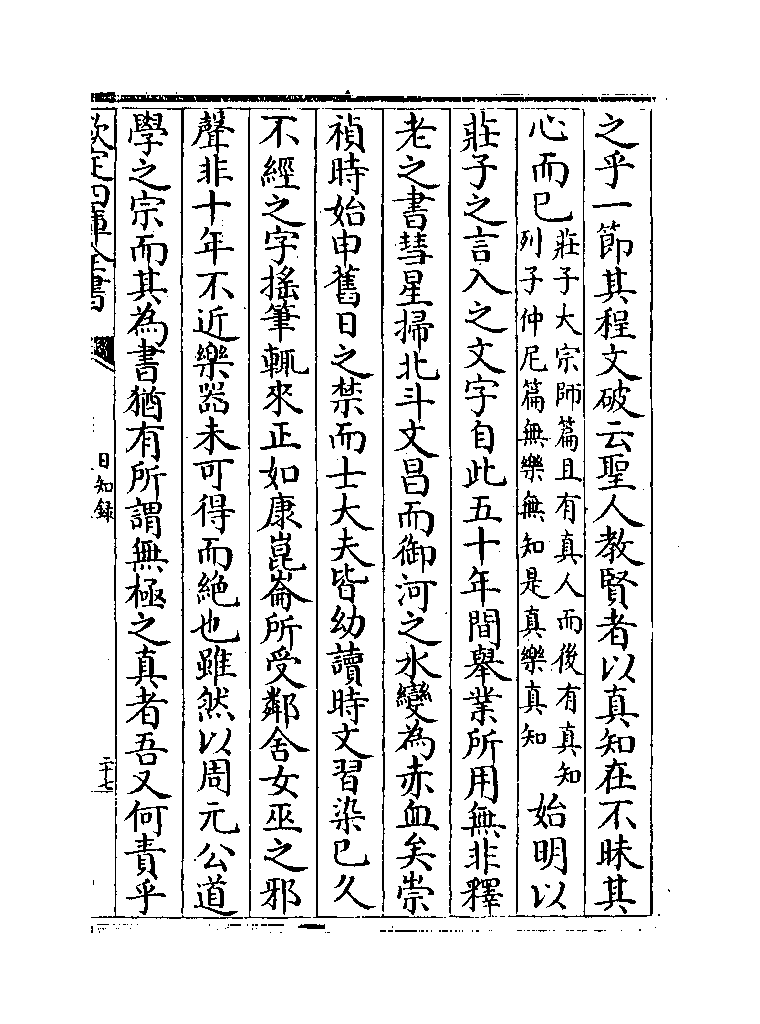 之乎一節其程文破云聖人教賢者以真知在不昧其
心而已莊子大宗師篇且有真人而後有真知列子仲尼篇無樂無知是真樂真知始明以
莊子之言入之文字自此五十年間舉業所用無非釋
老之書彗星掃北斗文昌而御河之水變為赤血矣崇
禎時始申舊日之禁而士大夫皆幼讀時文習染已久
不經之字搖筆輒來正如康崑崙所受鄰舍女巫之邪
聲非十年不近樂器未可得而絶也雖然以周元公道
學之宗而其為書猶有所謂無極之真者吾又何責乎
欽定四庫全書
日知録
二十七